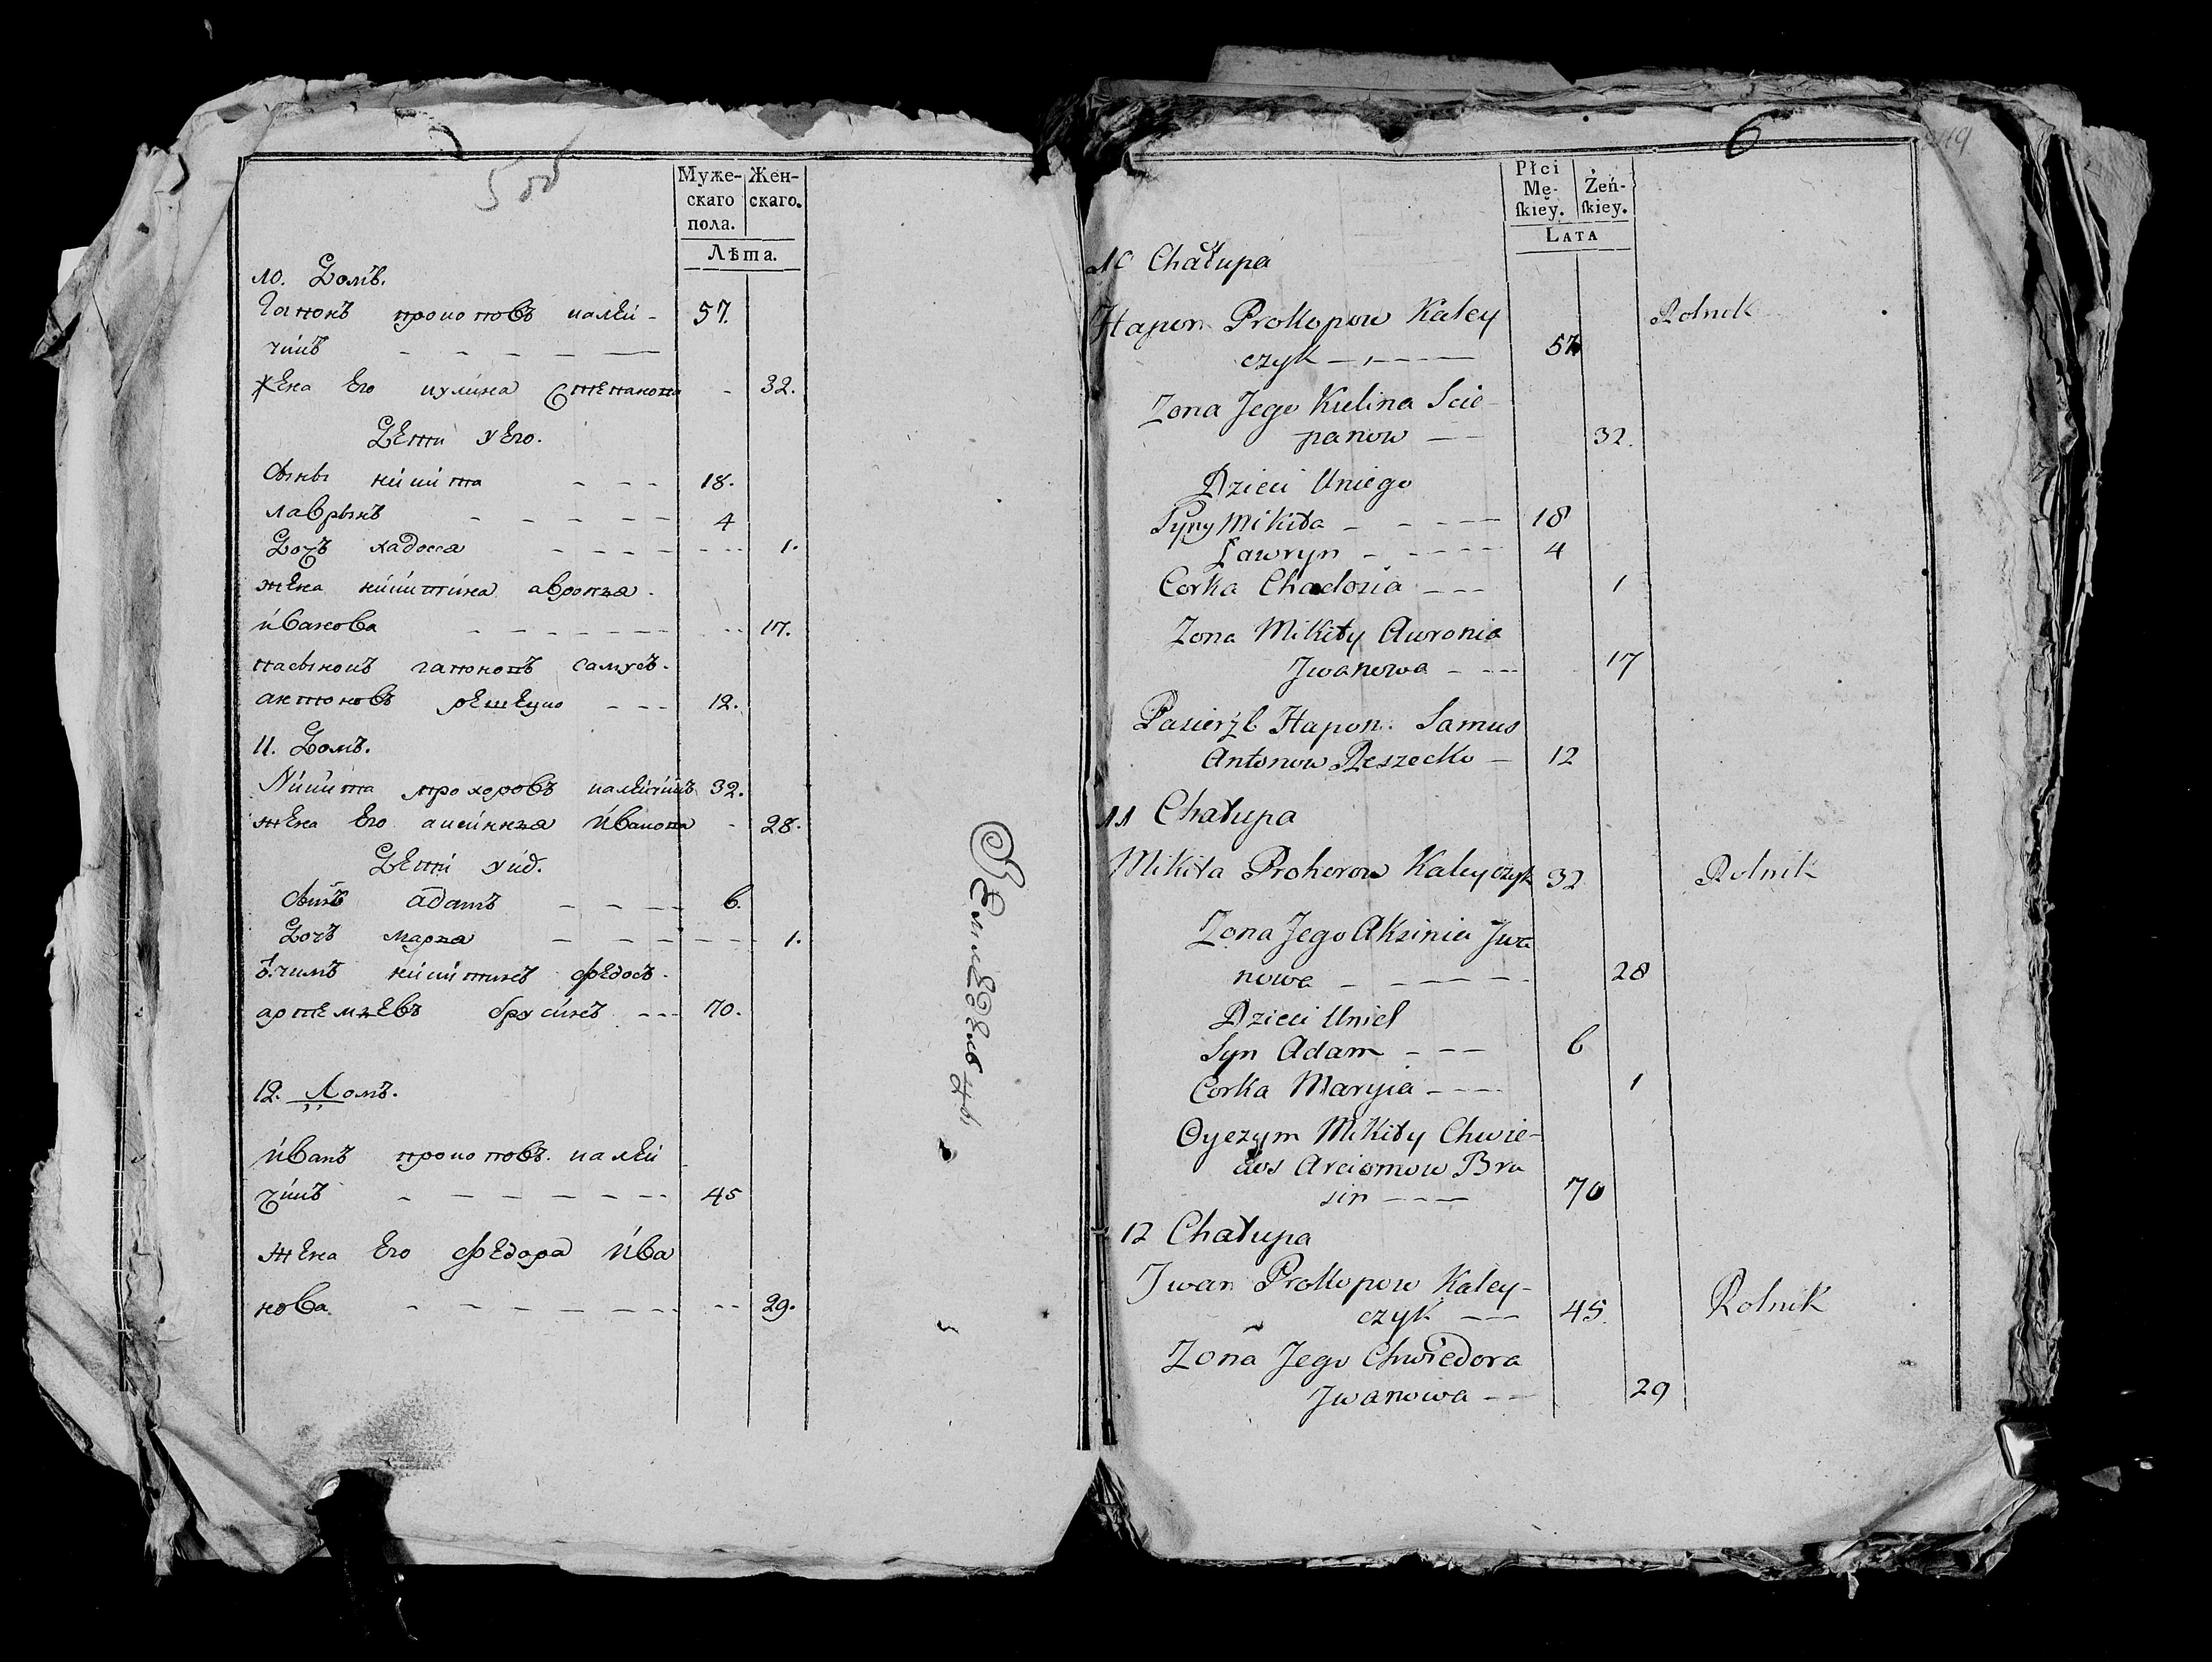 Муже-
скаго
пола.
Жен-
скаго.
Лѣта.
10. Домъ.
Гапонъ прокоповъ калей-
чикъ 57.
жена Его кулина Степанова 32.
Дети у Его.
Сыны никита 18.
лаврынъ 4
Дочъ хадося 1.
жена никитина авроня
иванова 17.
пасынокъ гапоновъ самусь
антоновъ решецко 12.
11. Домъ.
Никита прохоровъ калейчикъ 32.
жена Его аксиння иванова 28.
Дети у их.
Сынъ адамъ 6.
Дочъ маря 1.
отчимъ никитинъ федосъ
артемьевъ брусинъ 70.
12. Домъ.
иванъ прокоповъ калей
чикъ 45
жена Его федора ива
нова 29.
6
Płci
Mę-
ſkiey.
Żeń-
ſkiey.
Lata
10 Chałupa
Hapon Prokopow Kaley
czyk 57
Rolnik
Zona Jego Kulina Scie-
panow 32.
Dzieci Uniego
Syny Mikita 18
Ławryn 4
Corka Chadosia 1
Zona Mikity Awronia
Jwanowa 17
Pasierzb Hapon. Samus
Antonow Reszecko 12
11 Chałupa
Mikita Prohorow Kaleyczyk 32
Rolnik
Zona Jego Aksinia Jwa
nowa 28
Dzieci Unich
Syn Adam 6
Corka Maryia 1
Oyczym Mikity Chwie-
dos Arciomow Bru
sin 70
12 Chałupa
Jwan Prokopow Kaley-
czyk 45.
Rolnik
Zona Jego Chwiedora
Jwanowa 29